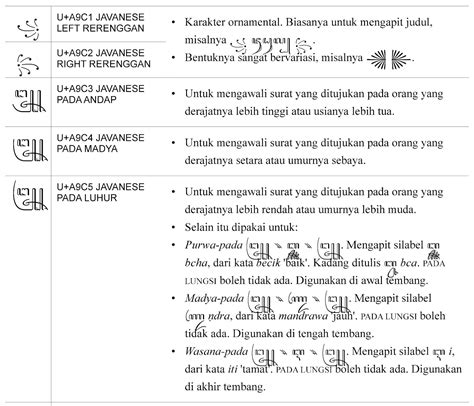 ꧁ U+A9C1 JAVANESE
LEFT RERENGGAN
• Karakter ornamental. Biasanya untuk mengapit judul,
misalnya
꧂ U+A9C2 JAVANESE
RIGHT RERENGGAN
• Bentuknya sangat bervariasi, misalnya
꧃ U+A9C3 JAVANESE
PADA ANDAP
• Untuk mengawali surat yang ditujukan pada orang yang
derajatnya lebih tinggi atau usianya lebih tua.
꧄ U+A9C4 JAVANESE
PADA MADYA
• Untuk mengawali surat yang ditujukan pada orang yang
derajatnya setara atau umurnya sebaya.
꧅ U+A9C5 JAVANESE
PADA LUHUR
• Untuk mengawali surat yang ditujukan pada orang yang
derajatnya lebih rendah atau umurnya lebih muda.
• Selain itu dipakai untuk:
• Purwa-pada . Mengapit silabel
bcha, dari kata becik 'baik'. Kadang ditulis bca. PADA
LUNGSI boleh tidak ada. Digunakan di awal tembang.
• Madya-pada . Mengapit silabel
ndra, dari kata mandrawa 'jauh'. PADA LUNGSI boleh
tidak ada. Digunakan di tengah tembang.
• Wasana-pada . Mengapit silabel i,
dari kata iti 'tamat'. PADA LUNGSI boleh tidak ada. Digunakan
di akhir tembang.